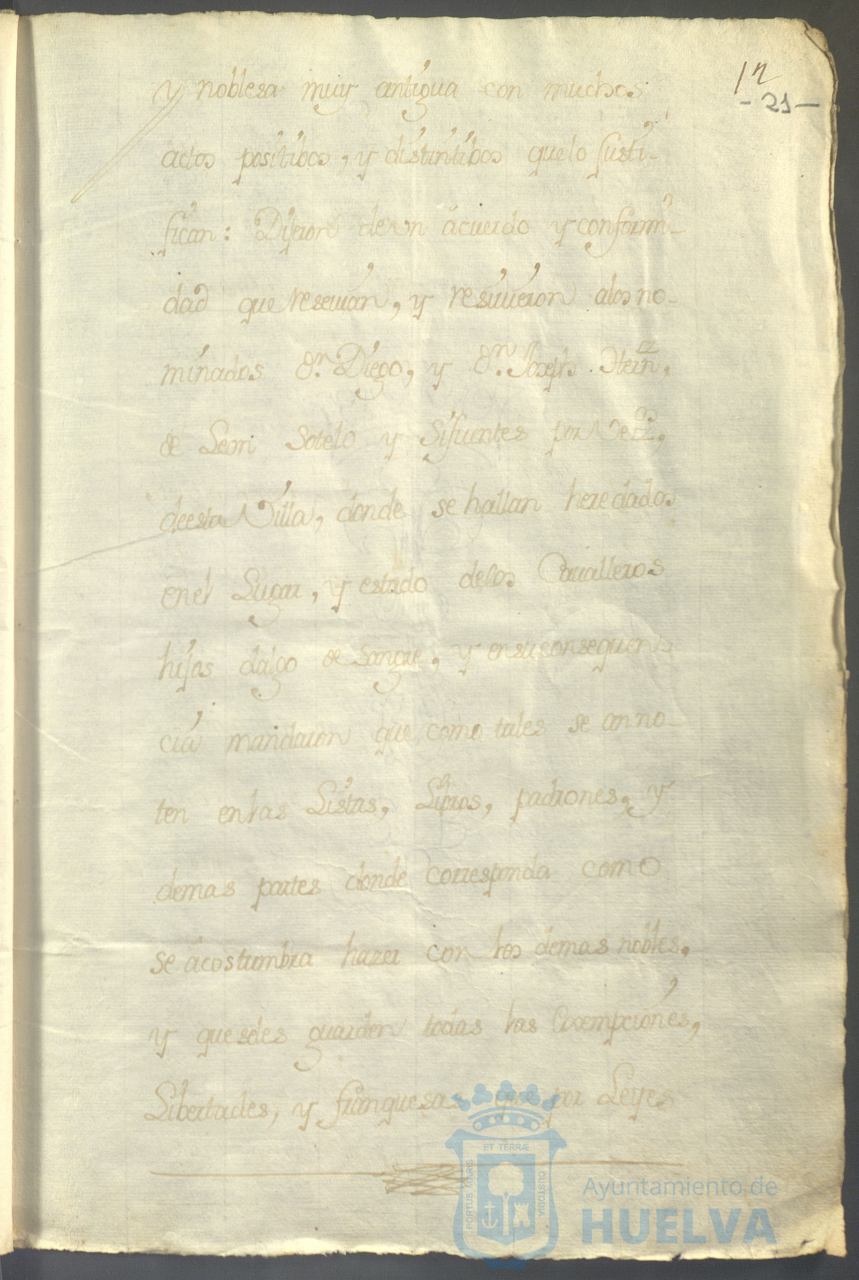 12
- 21 -
y noblesa muy antigua con muchos
actos positibos, y distintibos quelo justi-
fican: Dijeron de vn ácuerdo y conformi-
dad que reseuian, y resiuieron alos no-
minados Dn. Diego, y Dn. Joseph Hern.
de Leon Sotelo y Sifuentes por Vez.
deesta Villa, donde se hallan heredados
en el Lugar, y estado delos Cavalleros
hijos dalgo de Sangre, y ensuconsequen-
cia mandaron que como tales se anno-
ten enlas Listas, Libros, padrones, y
demas partes donde corresponda como
se ácostumbra hazer con los demas nobles,
y queseles guarden todas las Exempciones,
Libertades, y franquesas que por Leyes
ET TERRÆ
PORTUS MARIS
CUSTODIA
Ayuntamiento de
HUELVA